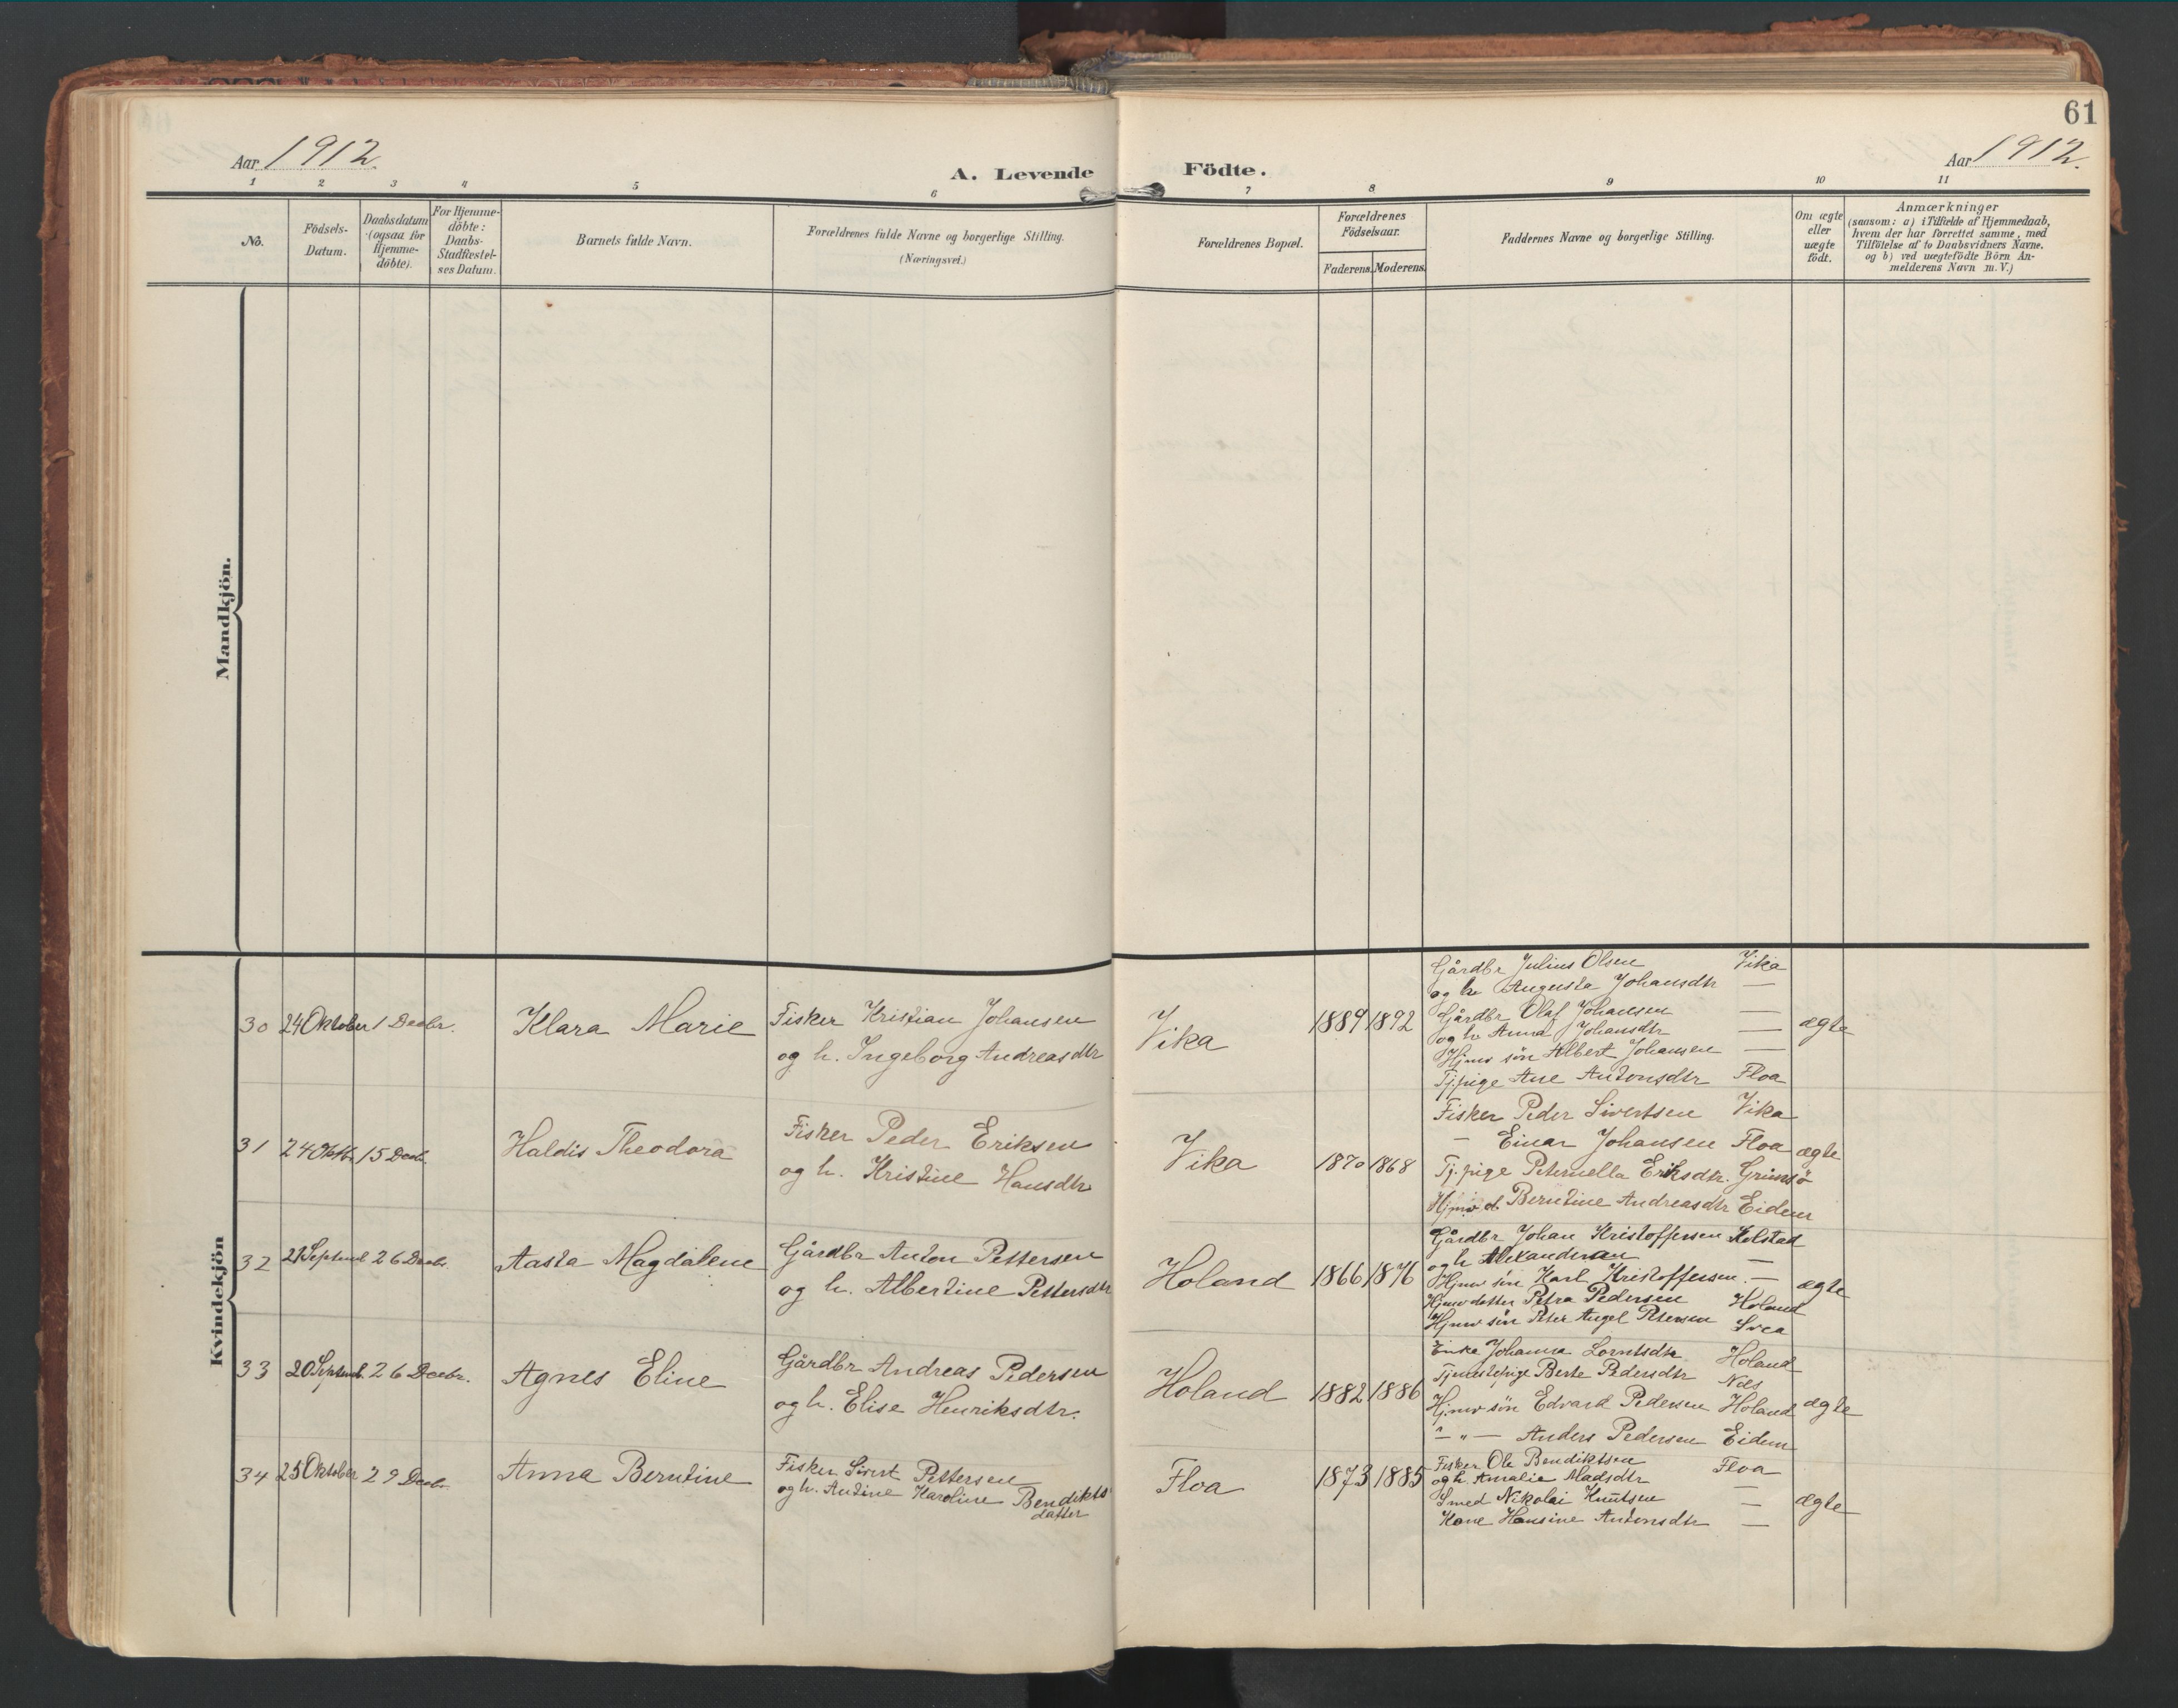 61
Aar 1912.
Aar 1912.
A. Levende Födte.
1 2 3 4 5 6 7 8 9 10 11
Nò.
Födsels-
Datum.
Daabsdatum
(ogsaa for
Hjemme-
döbte).
For Hjemme-
döbte:
Daabs-
Stadfæstel-
ses Datum.
Barnets fulde Navn.
Forældrenes fulde Navne og borgerlige Stilling.
(Næringsvei.)
Forældrenes Bopæl.
Forældrenes
Födselsaar.
Faderens. Moderens.
Faddernes Navne og borgerlige Stilling.
Om ægte
eller
uægte
födt.
Anmærkninger
(saasom: a) i Tilfælde af Hjemmedaab,
hvem der har forrettet samme, med
Tilföielse af to Daabsvidners Navne,
og b) ved uægtefödte Börn An-
melderens Navn m. V.)
Mandkjön.
Kvindekjön
30 24 Oktober 1 Decbr.
Klara Marie
Fisker Kristian Johansen
og h. Ingeborg Andreasdtr
Vika
1889 1892
Gårdbr Julius Olsen Vika
og h. Augusta Johansdtr —
Gårdbr Olaf Johansen —
og h. Anna Johansdtr —
Hjmv søn Albert Johansen —
Tj.pige Ane Antonsdtr Floa
ægte
31 24 Oktbr 15 Decbr.
Haldis Theodora
Fisker Peder Eriksen
og h. Kristine Hansdtr
Vika
1870 1868
Fisker Peder Sivertsen Vika
— Einar Johansen Floa
Tj.pige Peternella Eriksdtr. Grimsö
Hjmv d. Berntine Andreasdtr Eidem
ægte
32 21 Septemb 26 Decbr.
Aasta Magdalene
Gårdbr Anton Pettersen
og h. Albertine Pettersdtr
Holand
1866 1876
Gårdbr Johan Kristoffersen Kolstad
og h. —
Hjmv søn Karl Kristoffersen. —
Hjmv datter Petra Pedersen Holand
Hjmv søn Peter Angel Petersen
ægte
33 20 Septemb. 26 Decbr.
Agnes Eline
Gårdbr Andreas Pedersen
og h. Elise Henriksdtr.
Holand
1882 1886
Enke Johanna Lorntsdtr Holand
Tjenestepige Berte Pedersdtr
Hjmv søn Edvard Pedersen Holand
— „ — Anders Pedersen Eidem
ægte
34 25 Oktober 29 Decbr.
Anna Berntine
Fisker Sivert Pettersen
og h. Antine Karoline Bendikts
datter
Floa
1873 1885
Fisker Ole Bendiktsen Floa
og h. Amalie Madsdtr —
Smed Nikolai Knutsen —
Kone Hansine Antonsdtr —
ægte